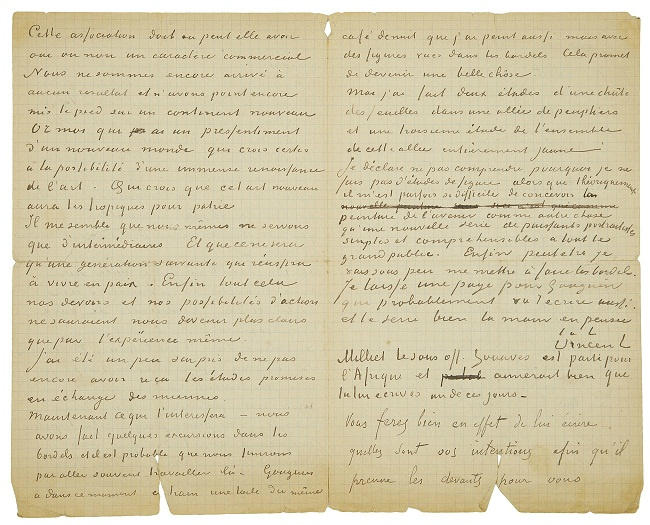 Cette association doit ou peut elle avoir
oui ou non un caractère commercial
Nous ne sommes encore arrivé à
aucun resultat et n'avons point encore
mis le pied sur un continent nouveau
Or moi qui ai un pressentiment
d'un nouveau monde qui crois certes
à la possibilité d'une immense renaissance
de l'art. Qui crois que cet art nouveau
aura les tropiques pour patrie
Il me semble que nous mêmes ne servons
que d'intermédiaires Et que ce ne sera
qu'une génération suivante qui réussira
à vivre en paix. Enfin tout cela
nos devoirs et nos possibilités d'action
ne sauraient nous devenir plus clairs
que par l'expérience même.
J'ai été un peu surpris de ne pas
encore avoir reçu les études promises
en échange des miennes
Maintenant ce qui t'interessera – nous
avons fait quelques excursions dans les
bordels et il est probable que nous finirons
par aller souvent travailler là. Gauguin
a dans ce moment en train une toile du même
café de nuit que j'ai peint aussi mais avec
des figures vues dans les bordels Cela promet
de devenir une belle chose.
Moi j'ai fait deux études d'une chûte
des feuilles dans une allée de peupliers
et une troisième étude de l'ensemble
de cette allée entièrement jaune
Je déclare ne pas comprendre pourquoi je ne
fais pas d'études de figure alors que théoriquement
il m'est parfois si difficile de concevoir la
peinture de l'avenir comme autre chose
qu'une nouvelle serie de puissants portraitistes
simples et comprehensibles à tout le
grand public. Enfin peut etre je
vais sous peu me mettre à faire les bordels.
Je laisse une page pour Gauguin
qui probablement va t'ecrire aussi.
et te serre bien la main en pensée
t. à t.
Vincent
Milliet le sous off. Zouaves est parti pour
l'Afrique et aimerait bien que
tu lui ecrives un de ces jours –
Vous ferez bien en effet de lui écrire
quelles sont vos intentions afin qu'il
prenne les devants pour vous